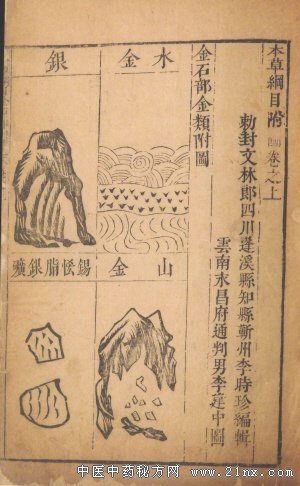 本草綱目附圖卷之上
勅封文林郎四川蓬溪縣知縣蘄州李時珍編輯
雲南永昌府通判男李建中圖
金石部金類附圖
水金
山金
銀
錫恡脂銀礦
中医中药秘方网 www.21nx.com